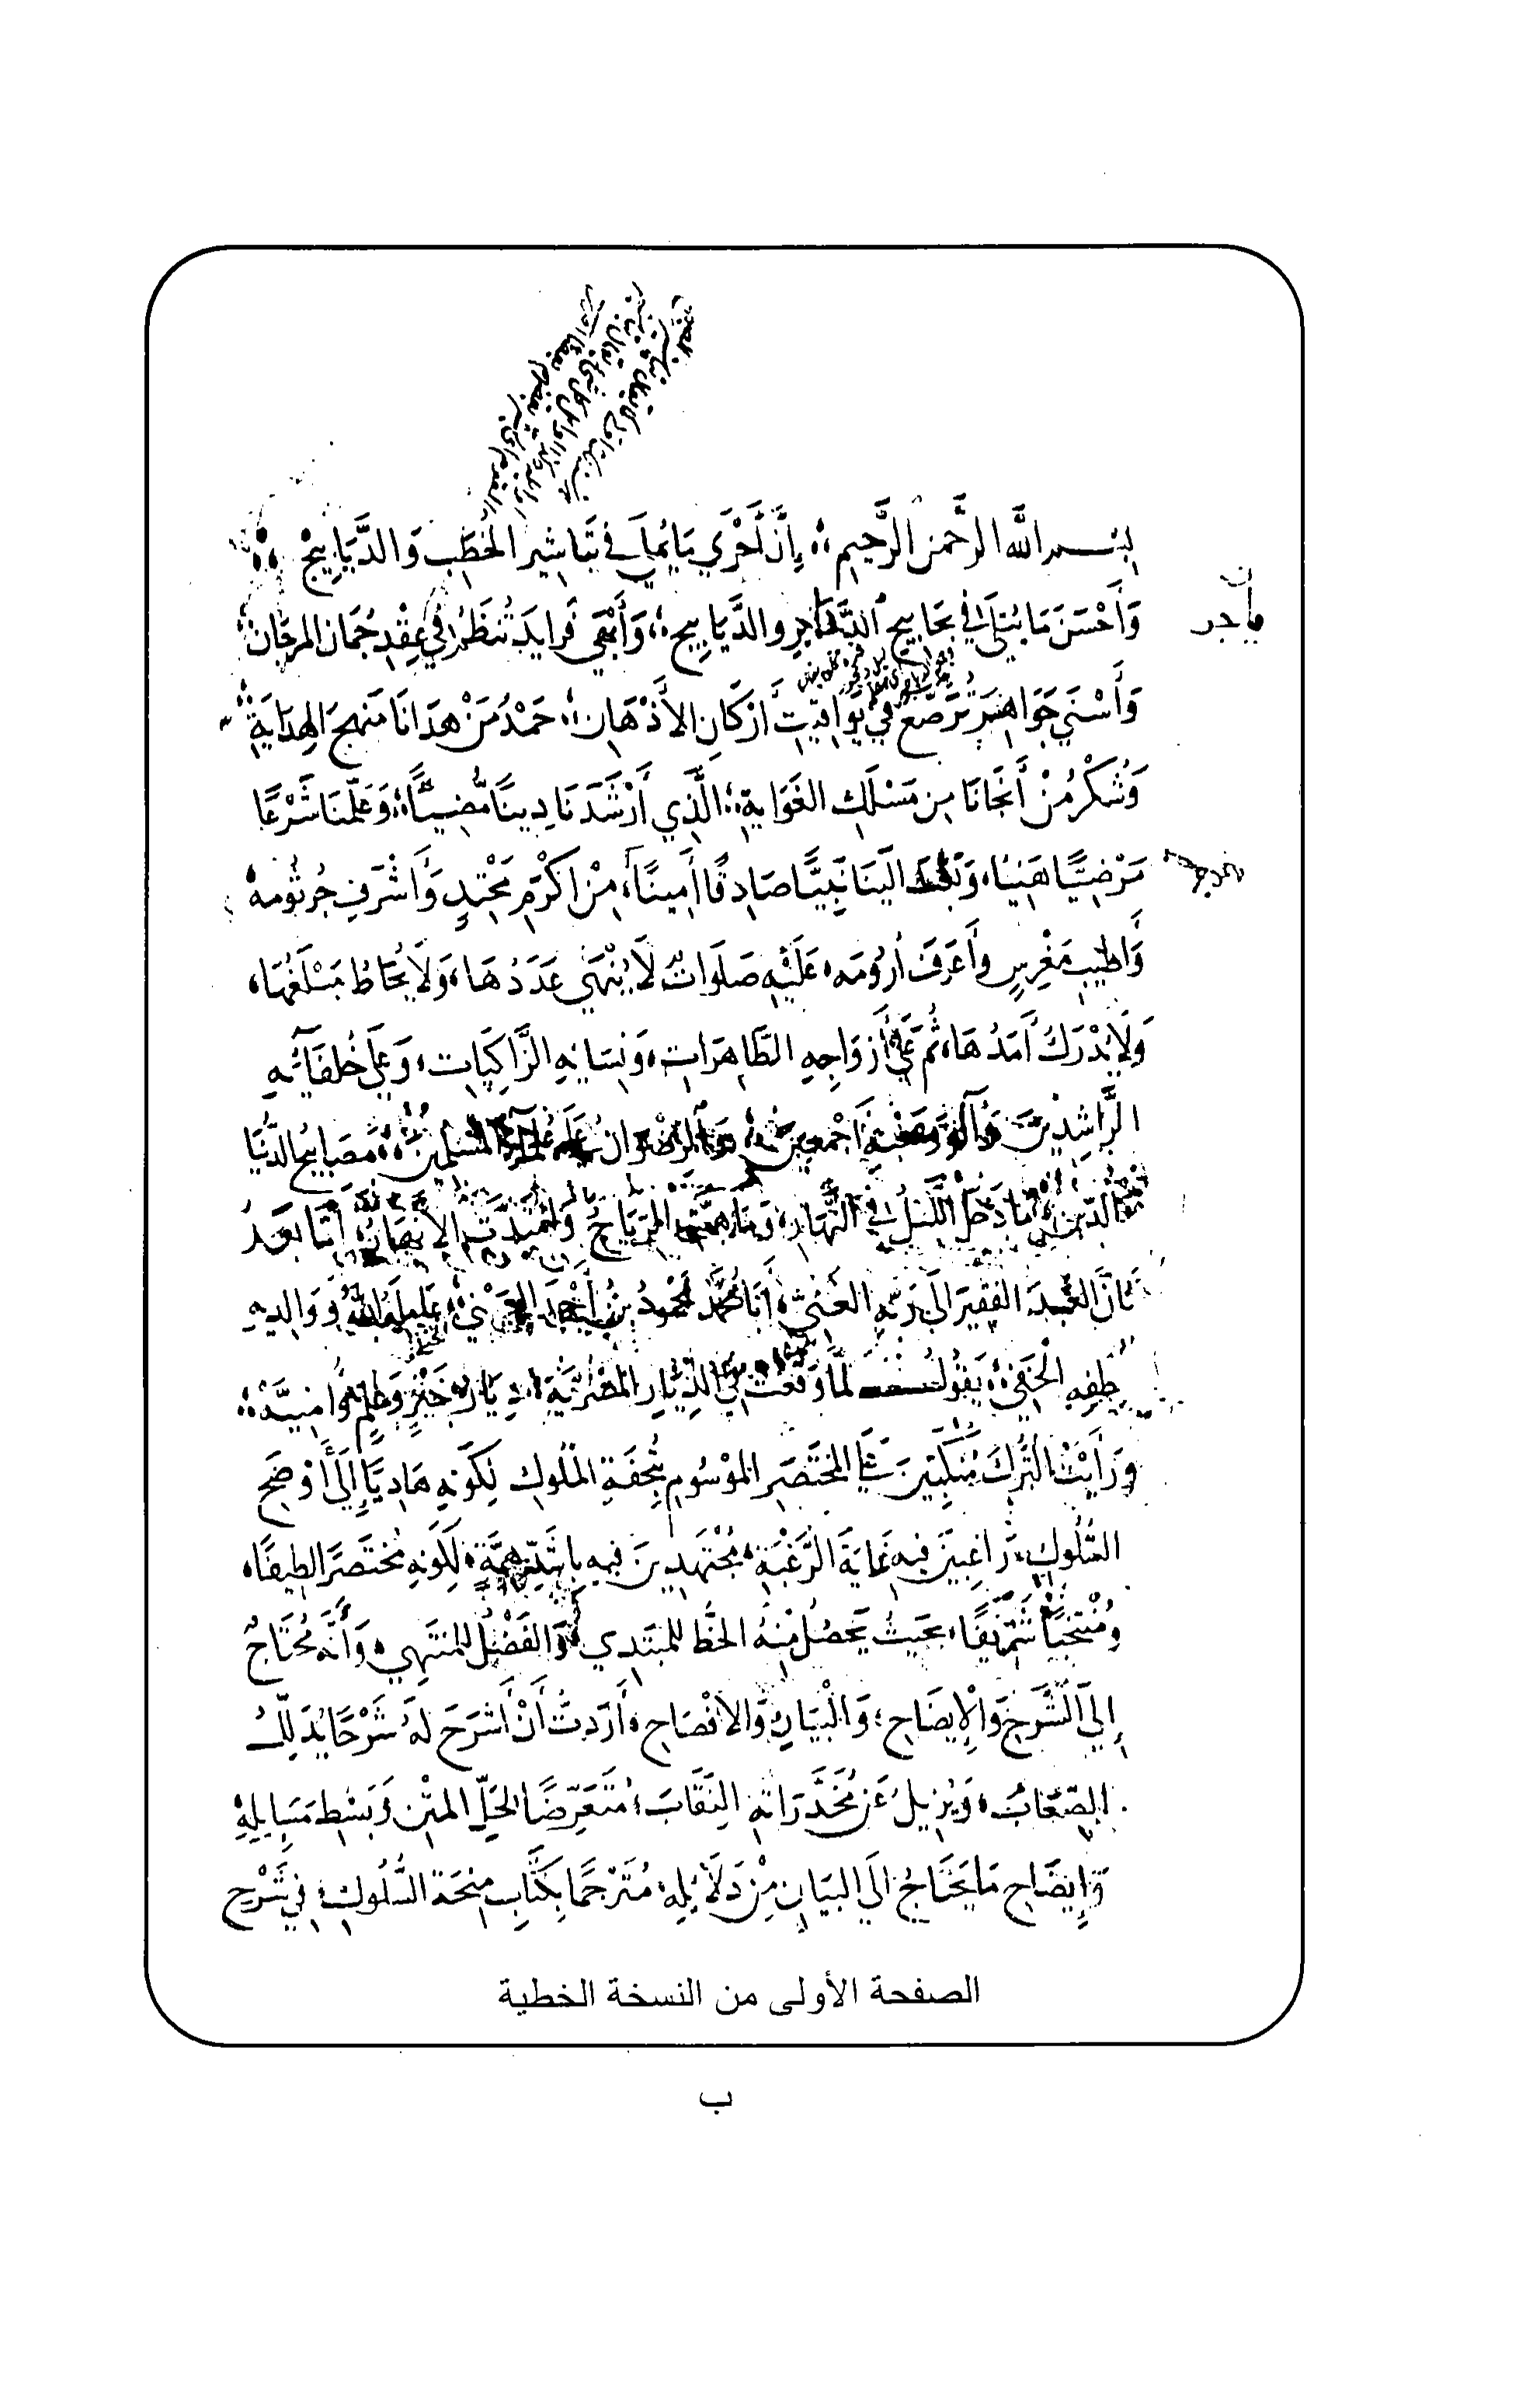 بسم الله الرَّحمن الرَّحِيم إِنَّ أَحْرَي مَا يُمْلَي في تَبَاشِيرِ الخُطَبِ وَالدَّيَابِيجْ
وَأَحْسَنَ مَا يُتْلَي في والدَّيَابِيج وَأَبْهَي فَرايِدَ تُنظَمُ في عِقْدِ جُمَانِ المرجَان
وَأَسْنَي جَوَاهِرَ تُرَصَّعُ في يَوَاقِيتِ أَرْكَانِ الأَذْهَانِ حَمْدُ مَنْ هدَانَا مَنهجَ الهِدَايَةِ
وَشُكْرُ مَنْ أَنجَانَا مِن مَسْلَكِ الغَوَايةِ الَّذِي أَرْشَدَنَا دِينًا مُضِيئًا وَعَلَّمنَا شَرْعًا
مَرْضِيًّا هَنِيئًا، وَبَعَثَ الَيْنَا نَبِيًّا صَادِقًا أَمِينًا، مِنْ اَكْرَمِ مَحْتِدٍ وَأَشْرَفِ جُرثُومه
وَأَطيَبِ مَغْرِسٍ وأَعرَفِ أرُومَه، عَلَيْهِ صَلَوَاتٌ لَا يُنْهَي عَدَدُهَا، وَلَا يُحَاطُ مَبْلَغُهَا،
وَلَا يُدْرَكُ أَمَدُهَا، ثُمَّ عَلَي أَزوَاجِهِ الطَّاهِرَاتِ، وَنِسَائِهِ الزَّاكِيَاتِ، وَعلَي خُلَفَائِهِ
الرَّاشِدِينَ وَآلِهِ وَصَحْبِهِ أَجْمعِينَ، الرِّضْوَانُ علَي المُسْلِمِينَ، مَصَابيحِ الدُّنْيَا
الدِّينِ مَا دَخَلَ اللَّيْلُ فِي النَّهَارِ، وَمَا هَبَّتِ الرِّيَاحُ الأَنْهَارُ أَمَّا بَعْدُ
فَانَّ العَبْدَ الفَقِيرَ الَى رَبِّهِ الغَنِيِّ، أَبَا مُحمَّد مَحْمُودُ بنُ أَحْمَدَ العَيْنِيّ، عَامَلَهُ اللهُ وَوَالِدِيهِ
بلُطفِهِ الْخَفِيِّ، يَقُولُ لَمَّا وَقَعْتُ فِي الدِّيَارِ المِصْرِيَّةِ، دِيَارِ خَيْرٍ وَعِلْمٍ وَأمنِيَّةْ
وَرَأَيْتُ التُّرْكَ مُنكَبِّينَ علَي المُخْتَصَرِ المَوْسُومِ بِتُحفَةِ المُلُوكِ لِكَوْنِهِ هَادِيًا إِلَى أَوْضَحِ
السُّلُوكِ، رَاغِبينَ فيهِ غَايَةَ الرَّغْبَةِ، مُجْتَهِدِينَ فيهِ بِاشَدِّ هِمَّةٍ، لِكَونِهِ مُختَصَرًا لطِيفًا،
وَمُنْتَخَبًا شَرِيفًا، بحَيثُ يَحصُلُ مِنهُ الحَظُّ للمُبتَدِي، وَالفَضْلُ للمُنتَهِي، وَأَنَّهُ مُحْتَاجٌ
إِلَى الشَّرْحِ وَالْإِيضَاحِ، وَالْبَيَانِ وَالافْصَاحِ، أَرَدتُ أَنْ أَشرَحَ لَهُ شَرْحًا يُذَلِّلُ
الصِّعَابَ، وَيُزِيلُ عَن مُخَدَّرَاتِهِ النِّقَابَ، مُتَعَرِّضًا لحَلِّ المَتْنِ وَبَسْطِ مَسَايِلِهِ
وَإِيضَاحِ مَا يَحْتَاجُ الَى البَيَانِ مِنْ دَلَائِلِهِ، مُتَرْجَمًا بِكِتَابِ مِنحَة السُّلُوكِ، في شَرْحِ
الصفحة الأولى من النسخة الخطية
ب